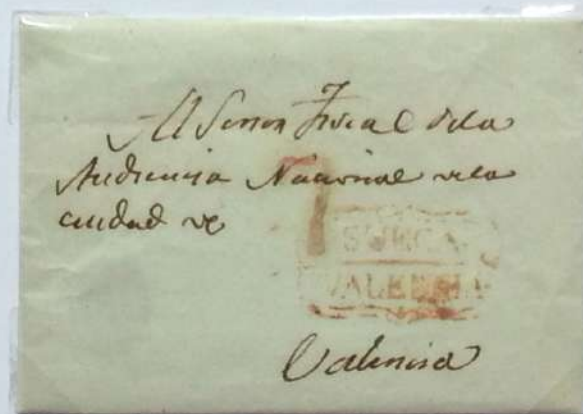 Al Señor Fiscal dela
Audiencia Nacional dela
ciudad de
SUECA
VALENCIA
Valencia